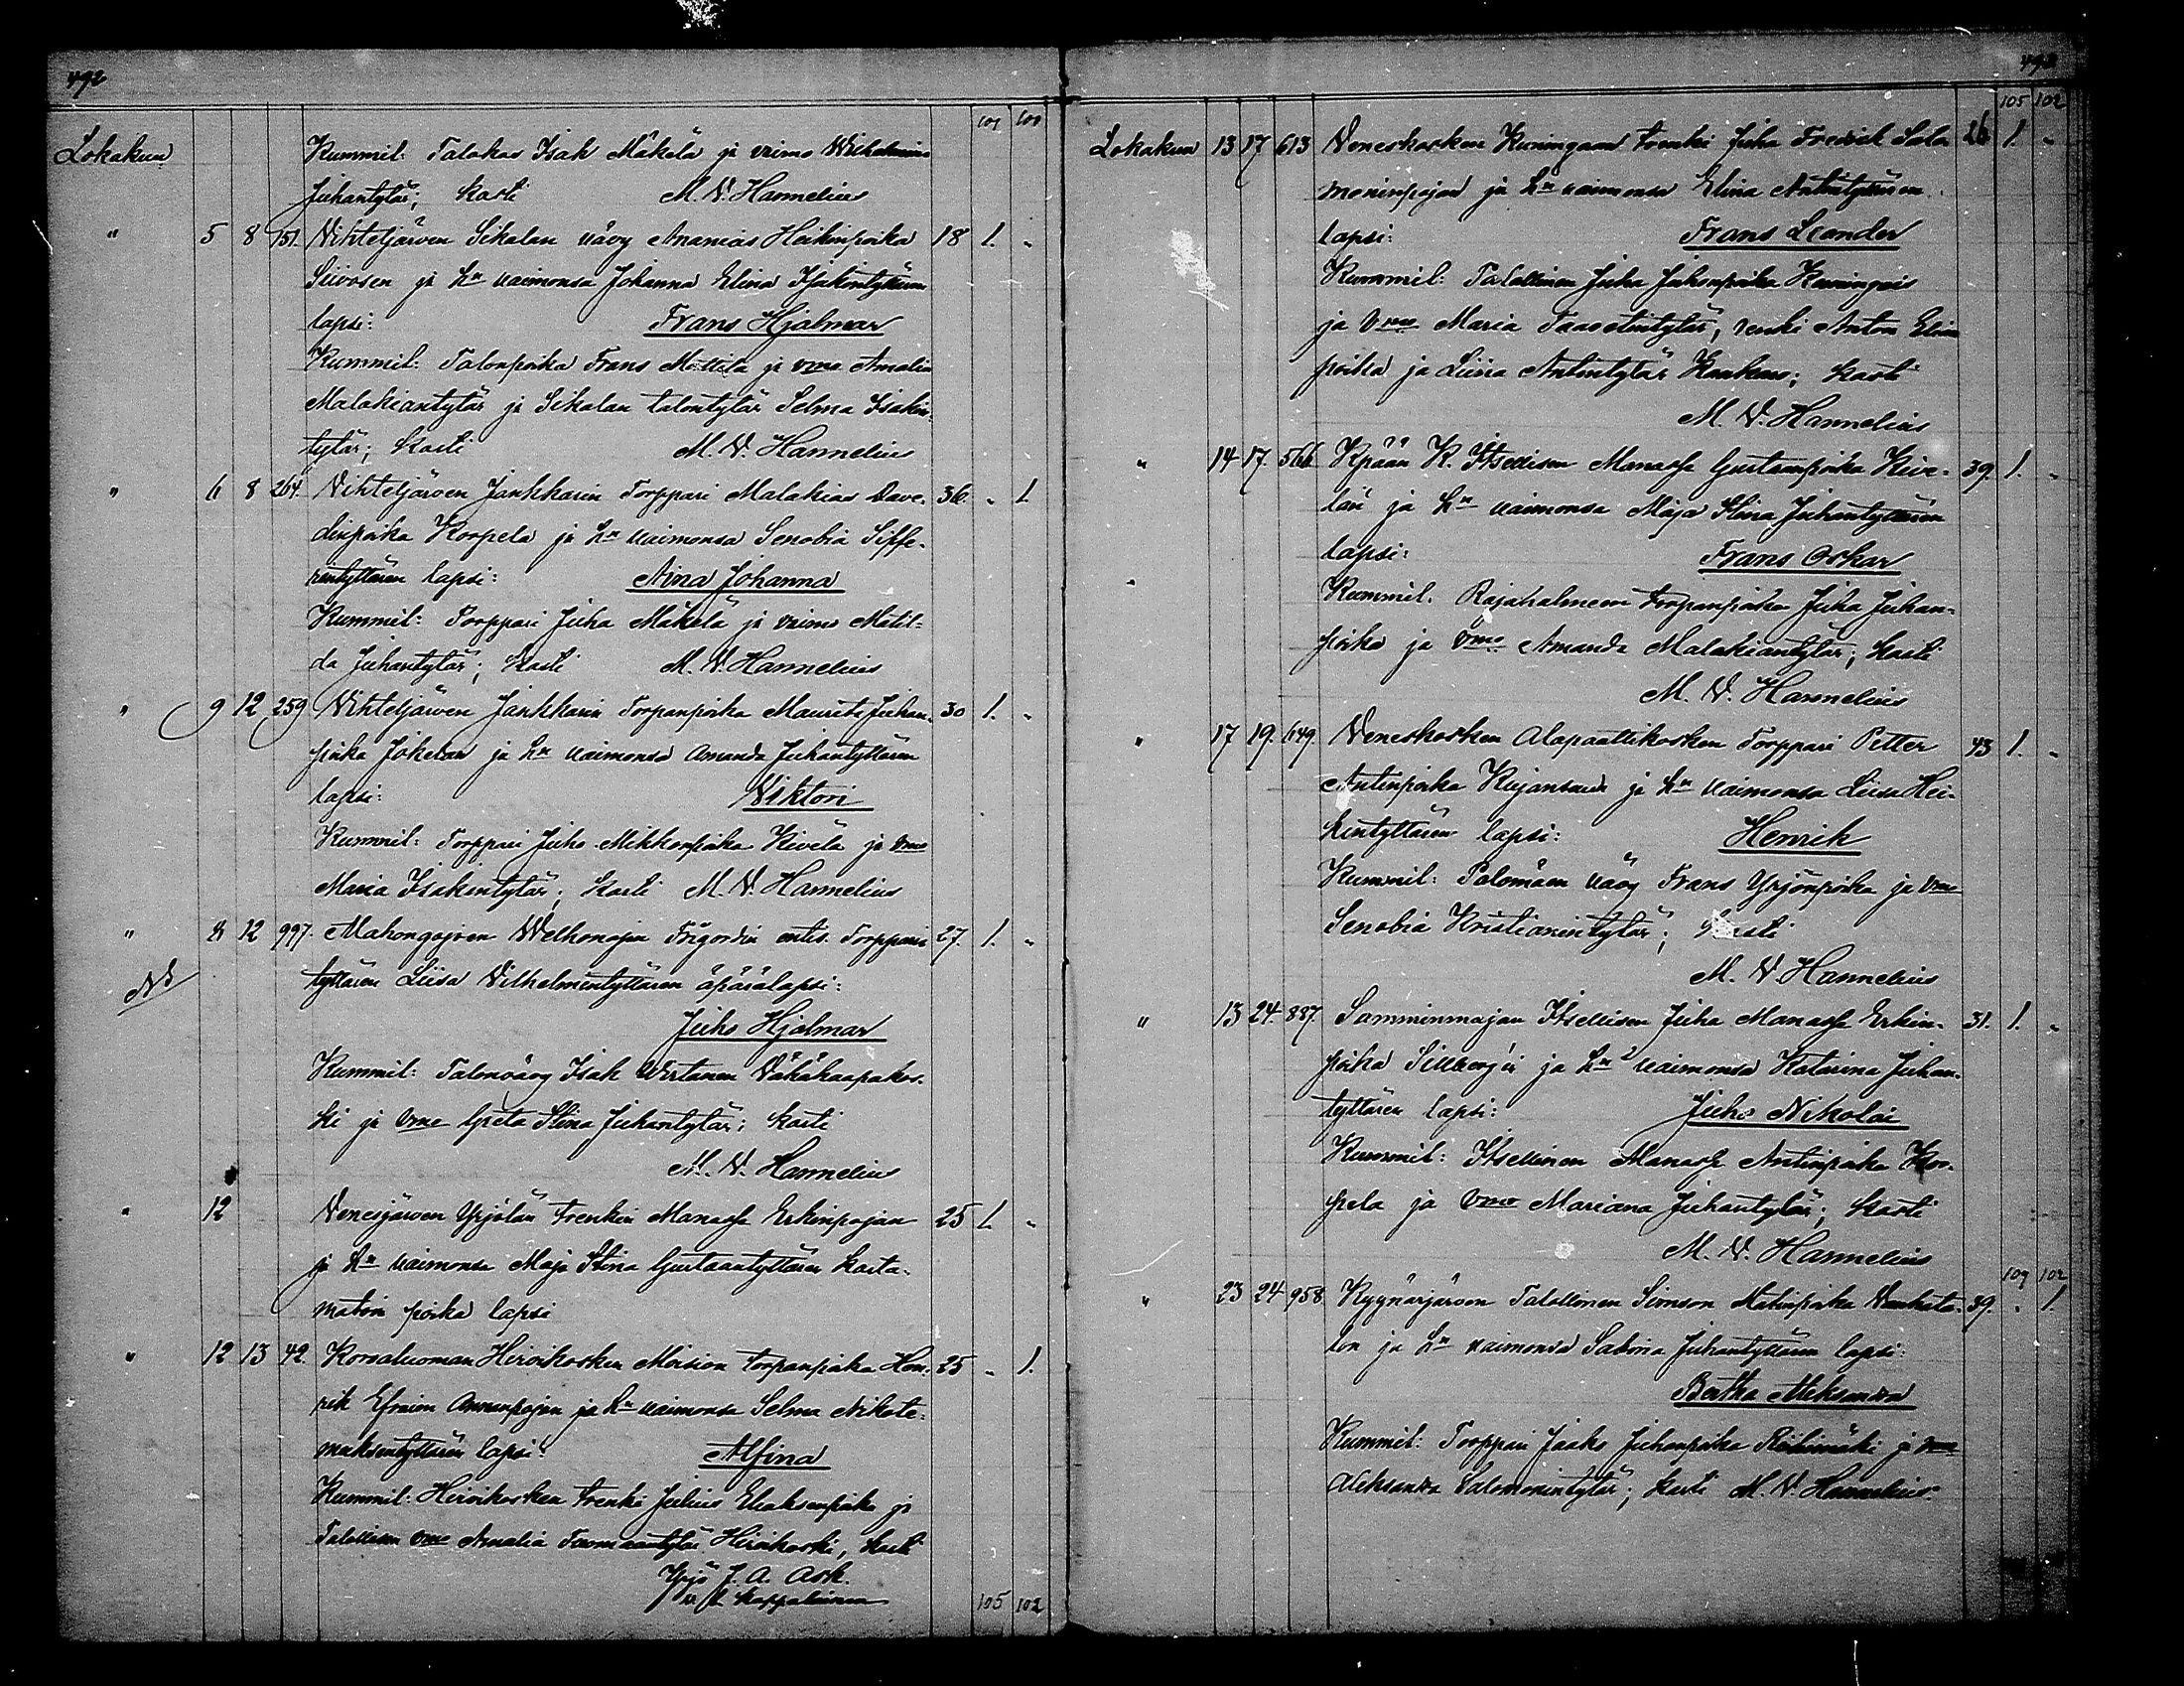 492
101 100
Lokakuu Kummit: Talokas Isak Mäkelä ja vaimo Wilhelmina
Juhantytär; kasti M. V. Hannelius
" 5 8 151. Vihteljärven Sikalan vävy Ananias Heikinpoika 18 1. "
Siivosen ja hn vaimonsa Johanna Elina Isakintyttären
lapsi: Frans Hjalmar
Kummit: Talonpoika Frans Mattila ja vmo Amalia
Malakiantytär ja Sikalan talontytär Selma Isakin-
tytär; kasti M. V. Hannelius
" 6 8 264. Vihteljärven Jankkarin Torppari Malakias Dave- 36. " 1
dinpoika Korpela ja hn vaimonsa Senobia Siffe-
rintyttären lapsi: Aina Johanna
Kummit: Torppari Juha Mäkelä ja vaimo Matil-
da Juhantytär; kasti M. V. Hannelius
" 9 12 259 Vihteljärven Jankkarin Torpanpoika Maurits Juhan- 30 1. "
poika Jokelan ja hn vaimonsa Amanda Juhantyttären
lapsi: Viktori
Kummit: Torppari Juho Mikkonpoika Kivelä ja vmo
Maria Isakintytär; kasti M. V. Hannelius
" 8 12 997. Mahongojven Welhonojan Frigordin entis. Torpparin 27. 1. "
tyttären Liisa Vilhelmintyttären äpärälapsi:
Juho Hjalmar
Kummit: Talonvävy Isak Wirtanen Vähähaapakos-
ki ja vmo Greta Stina Juhantytär; kasti
M. V. Hannelius
" 12 Venesjärven Yrjölän trenkin Manasse Erkinpojan 25 1. "
ja hn vaimonsa Maja Stina Gustaantyttären kasta-
matoin poika lapsi
" 12 13 42. Korvaluoman Hirvikosken Moision torpanpoika Hen- 25 " 1.
rik Efraim Annanpojan ja hn vaimonsa Selma Nikote-
muksentyttären lapsi: Alfina
Kummit: Hirvikosken trenki Julius Eliaksenpoika ja
Talollisen vmo Amalia Tuomaantytär Hirvikoski, kasti
Yrjö J. A. Ask.
v. t. kappalainen
105 102
493
105 102
Lokakuu 13 17 613 Veneskosken Kuningaan trenki Juha Fredrik Salo- 26 1. "
moninpojan ja hn vaimonsa Elina Antintyttären
lapsi: Frans Leander
Kummit: Talollinen Juha Juhonpoika Kuningas
ja vmo Maria Taavetintytär, renki Anton Elian
poika ja Liina Antintytär Kankaas; kasti
M. V. Hannelius
" 14 17. 566 Kpään K. Itsellisen Manasse Gustaanpoika Kive- 39. 1. "
län ja hn vaimonsa Maja Stina Juhantyttären
lapsi: Frans Oskar
Kummit. Rajahalmeen torpanpoika Juha Juhan-
poika ja vmo Amanda Malakiantytär; kasti
M. V. Hannelius
" 17 19. 649. Veneskosken Alapaattikosken Torppari Petter 43 1. "
Antinpoika Kujansuu ja hn vaimonsa Liisa Hei-
kintyttären lapsi: Henrik
Kummit: Palomäen vävy Frans Yrjönpoika ja vmo
Senobia Kristianintytär; kasti
M. V. Hannelius
" 13 24. 887. Samminmajan Itsellisen Juha Manasse Erkin- 31. 1. "
poika Sillberg'ii ja hn vaimonsa Katarina Juhan-
tyttären lapsi: Juho Nikolai
Kummit: Itsellinen Manasse Antinpoika Kor-
pela ja vmo Mariana Juhantytär; kasti
M. V. Hannelius
109 102
" 23 24 958 Kyynärjärven Talollinen Simson Matinpoika Vanhata- 39. " 1.
lon ja hn vaimonsa Sabina Juhantyttären lapsi:
Bertha Aleksandra
Kummit: Torppari Jaako Juhanpoika Riihimäki ja vmo
Aleksandra Salomonintytär; kasti M. V. Hannelius.